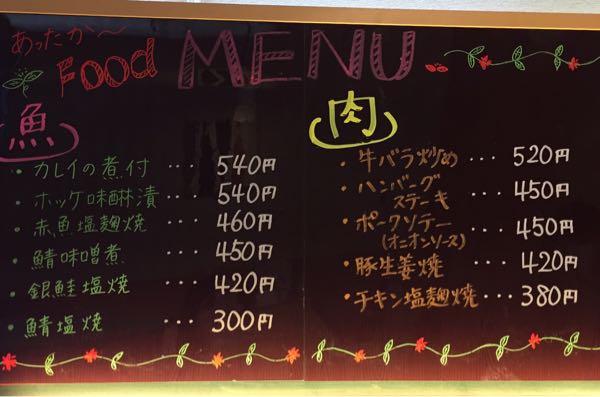 あったか〜
Food MENU
魚
・カレイの煮付 ... 540円
・ホッケ味醂漬 ... 540円
・赤魚塩麹焼 ... 460円
・鯖味噌煮 ... 450円
・銀鮭塩焼 ... 420円
・鯖塩焼 ... 300円
肉
・牛バラ炒め ... 520円
・ハンバーグ
ステーキ ... 450円
・ポークソテー
(オニオンソース) ... 450円
・豚生姜焼 ... 420円
・チキン塩麹焼 ... 380円